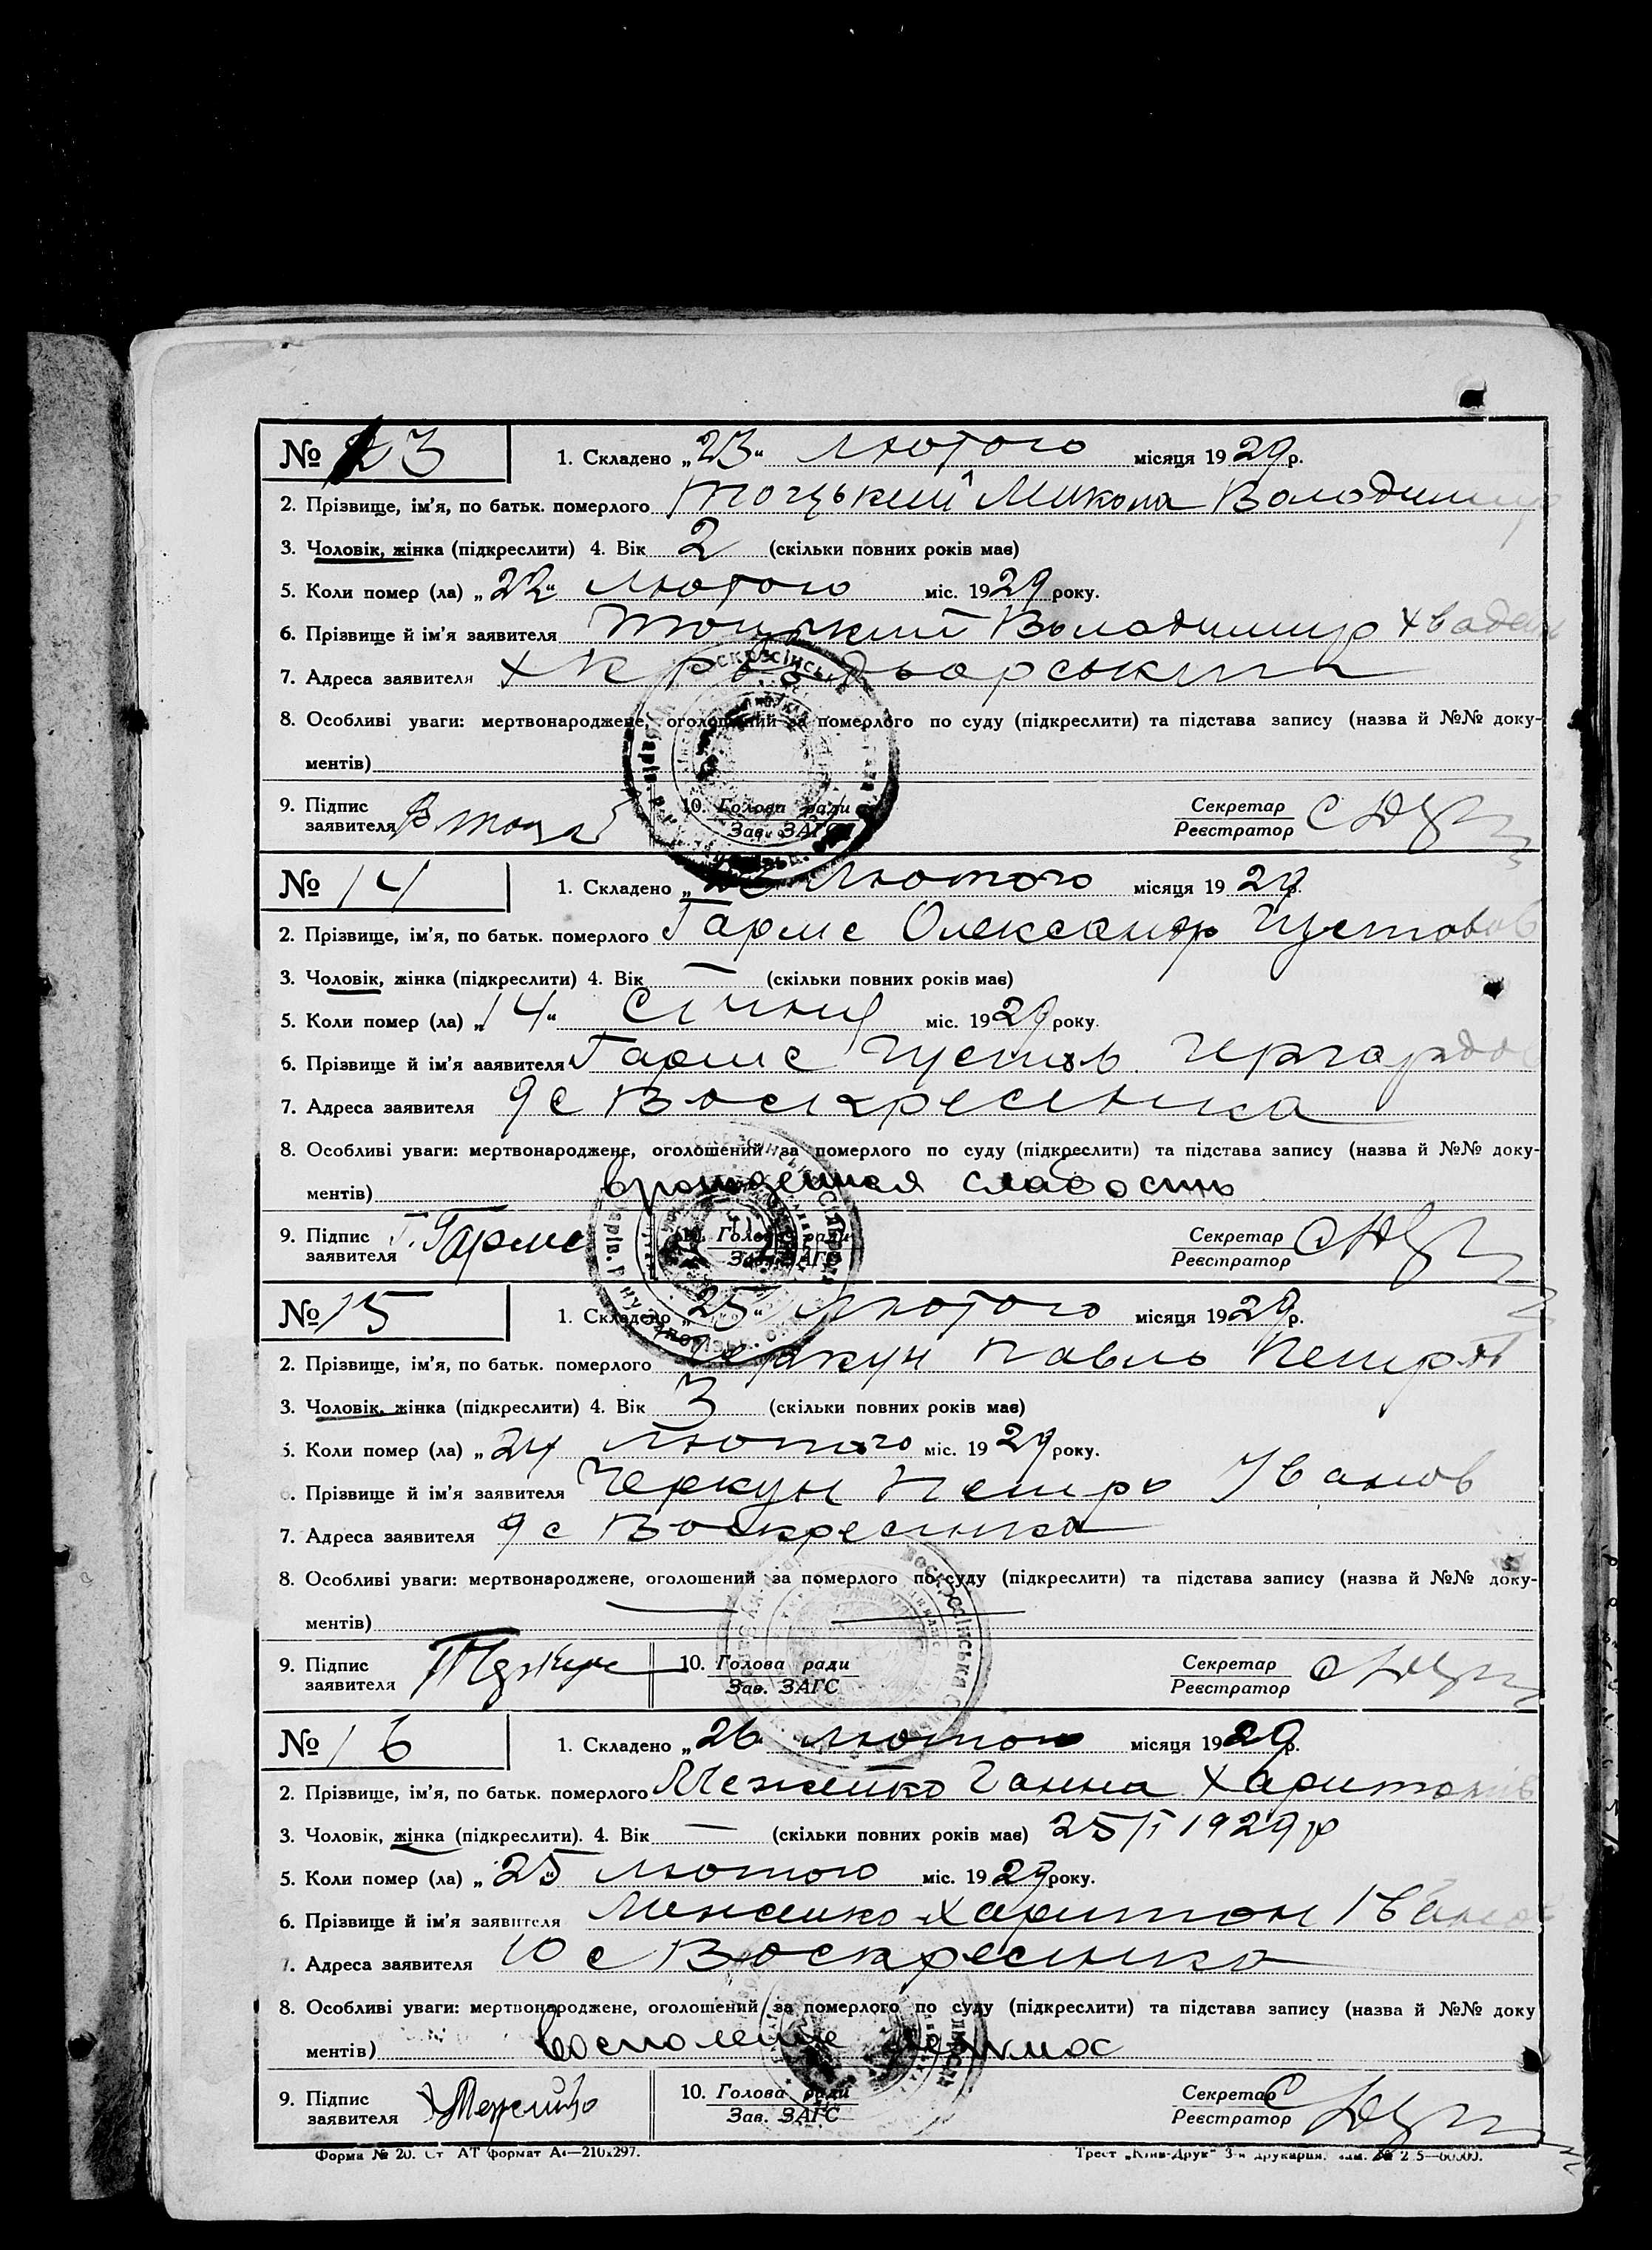 № 13
1. Складено „23“ Лютого місяця 1929 р.
2. Прізвище, ім’я, по батьк. померлого Тоцький Микола Володимир
3. Чоловік, жінка (підкреслити) 4. Вік 2 (скільки повних років має)
5. Коли помер (ла) „22“ Лютого міс. 1929 року.
6. Прізвище й ім’я заявителя Тоцький Володимир
7. Адреса заявителя
8. Особливі уваги: мертвонароджене, оголошений за померлого по суду (підкреслити) та підстава запису (назва й №№ доку-
ментів)
9. Підпис заявителя
10. Голова ради Зав. ЗАГС
Секретар Реєстратор
№ 14
1. Складено „ Лютого місяця 1929 р.
2. Прізвище, ім’я, по батьк. померлого Гармс Олександр Густовов
3. Чоловік, жінка (підкреслити) 4. Вік — (скільки повних років має)
5. Коли помер (ла) „14“ Січня міс. 1929 року.
6. Прізвище й ім’я заявителя Гармс Густов Гергардов
7. Адреса заявителя 9 с Воскресенка
8. Особливі уваги: мертвонароджене, оголошений за померлого по суду (підкреслити) та підстава запису (назва й №№ доку-
ментів) врожденная слабость
9. Підпис заявителя Г. Гармс
10. Голова ради Зав. ЗАГС
Секретар Реєстратор
№ 15
1. Складено „25“ Лютого місяця 1929 р.
2. Прізвище, ім’я, по батьк. померлого Черкун Павль Петров
3. Чоловік, жінка (підкреслити) 4. Вік 3 (скільки повних років має)
5. Коли помер (ла) „24 Лютого міс. 1929 року.
6. Прізвище й ім’я заявителя Черкун Петро Іванов
7. Адреса заявителя 9 с Воскресенка
8. Особливі уваги: мертвонароджене, оголошений за померлого по суду (підкреслити) та підстава запису (назва й №№ доку-
ментів)
9. Підпис заявителя
10. Голова ради Зав. ЗАГС
Секретар Реєстратор
№ 16
1. Складено „26 лютого місяця 1929 р.
2. Прізвище, ім’я, по батьк. померлого Межейко Ганна Харитонів
3. Чоловік, жінка (підкреслити). 4. Вік — (скільки повних років має) 25/I 1929 р
5. Коли помер (ла) „25 лютого міс. 1929 року.
6. Прізвище й ім’я заявителя Харитон Іванов
7. Адреса заявителя 10 с Воскресенка
8. Особливі уваги: мертвонароджене, оголошений за померлого по суду (підкреслити) та підстава запису (назва й №№ доку
ментів) восполение
9. Підпис заявителя
10. Голова ради Зав. ЗАГС
Секретар Реєстратор
Форма № 20. Ст АТ формат А4—210x297.
Трест „Київ-Друк“ 3-я друкарня.